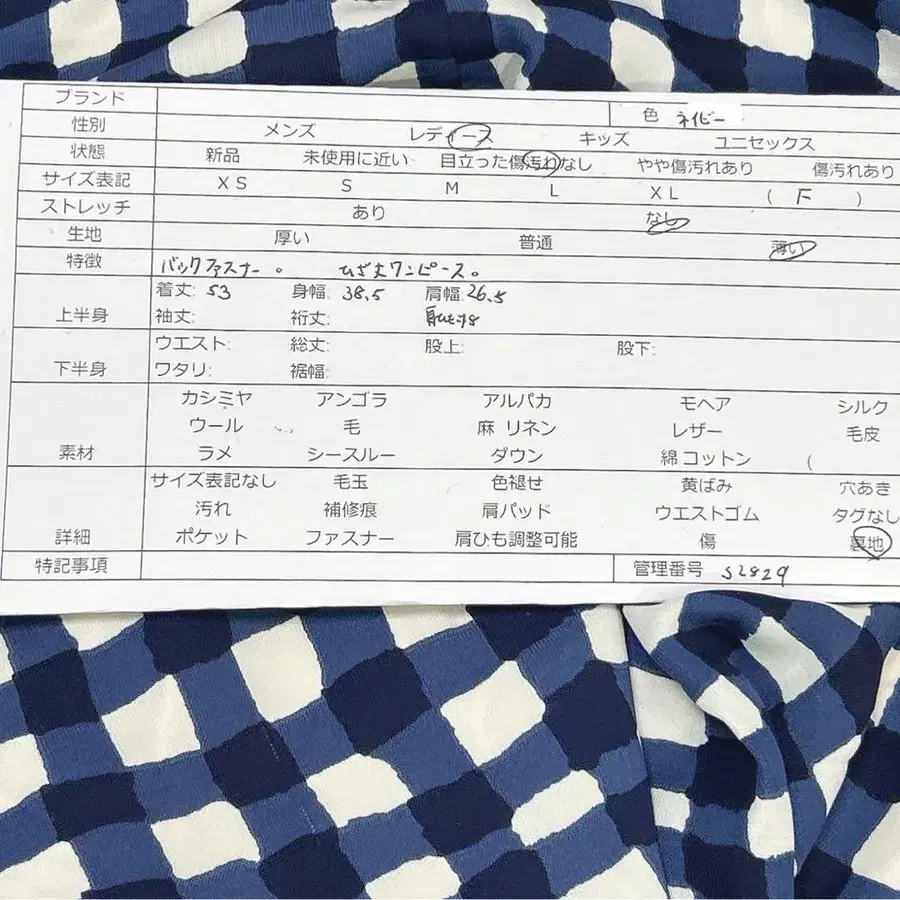 ブランド
色 ネイビー
性別 メンズ レディース キッズ ユニセックス
状態 新品 未使用に近い 目立った傷汚れなし やや傷汚れあり 傷汚れあり
サイズ表記 XS S M L XL ( F )
ストレッチ あり なし
生地 厚い 普通 薄い
特徴 バックファスナー。 ひざ丈ワンピース。
上半身 着丈: 53 身幅: 38.5 肩幅: 26.5
袖丈: 裄丈:
下半身 ウエスト: 総丈: 股上: 股下:
ワタリ: 裾幅:
素材 カシミヤ アンゴラ アルパカ モヘア シルク
ウール 毛 麻 リネン レザー 毛皮
ラメ シースルー ダウン 綿 コットン (
詳細 サイズ表記なし 毛玉 色褪せ 黄ばみ 穴あき
汚れ 補修痕 肩パッド ウエストゴム タグなし
ポケット ファスナー 肩ひも調整可能 傷 裏地
特記事項 管理番号 S2829